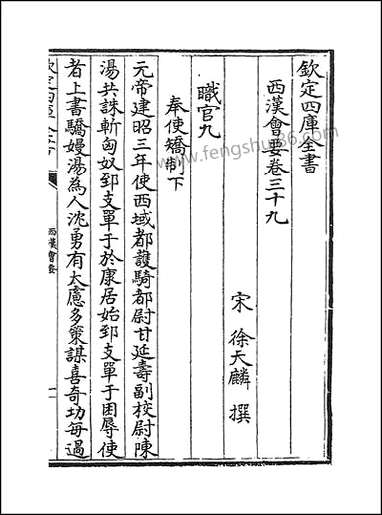 欽定四庫全書
西漢會要卷三十九
宋 徐天麟 撰
職官九
奉使矯制下
元帝建昭三年使西域都護騎都尉甘延壽副校尉陳
湯共誅斬匈奴郅支單于於康居始郅支單于困辱使
者上書驕嫚湯為人沈勇有大慮多策謀喜奇功每過
西漢會要
www.fengshui86.com